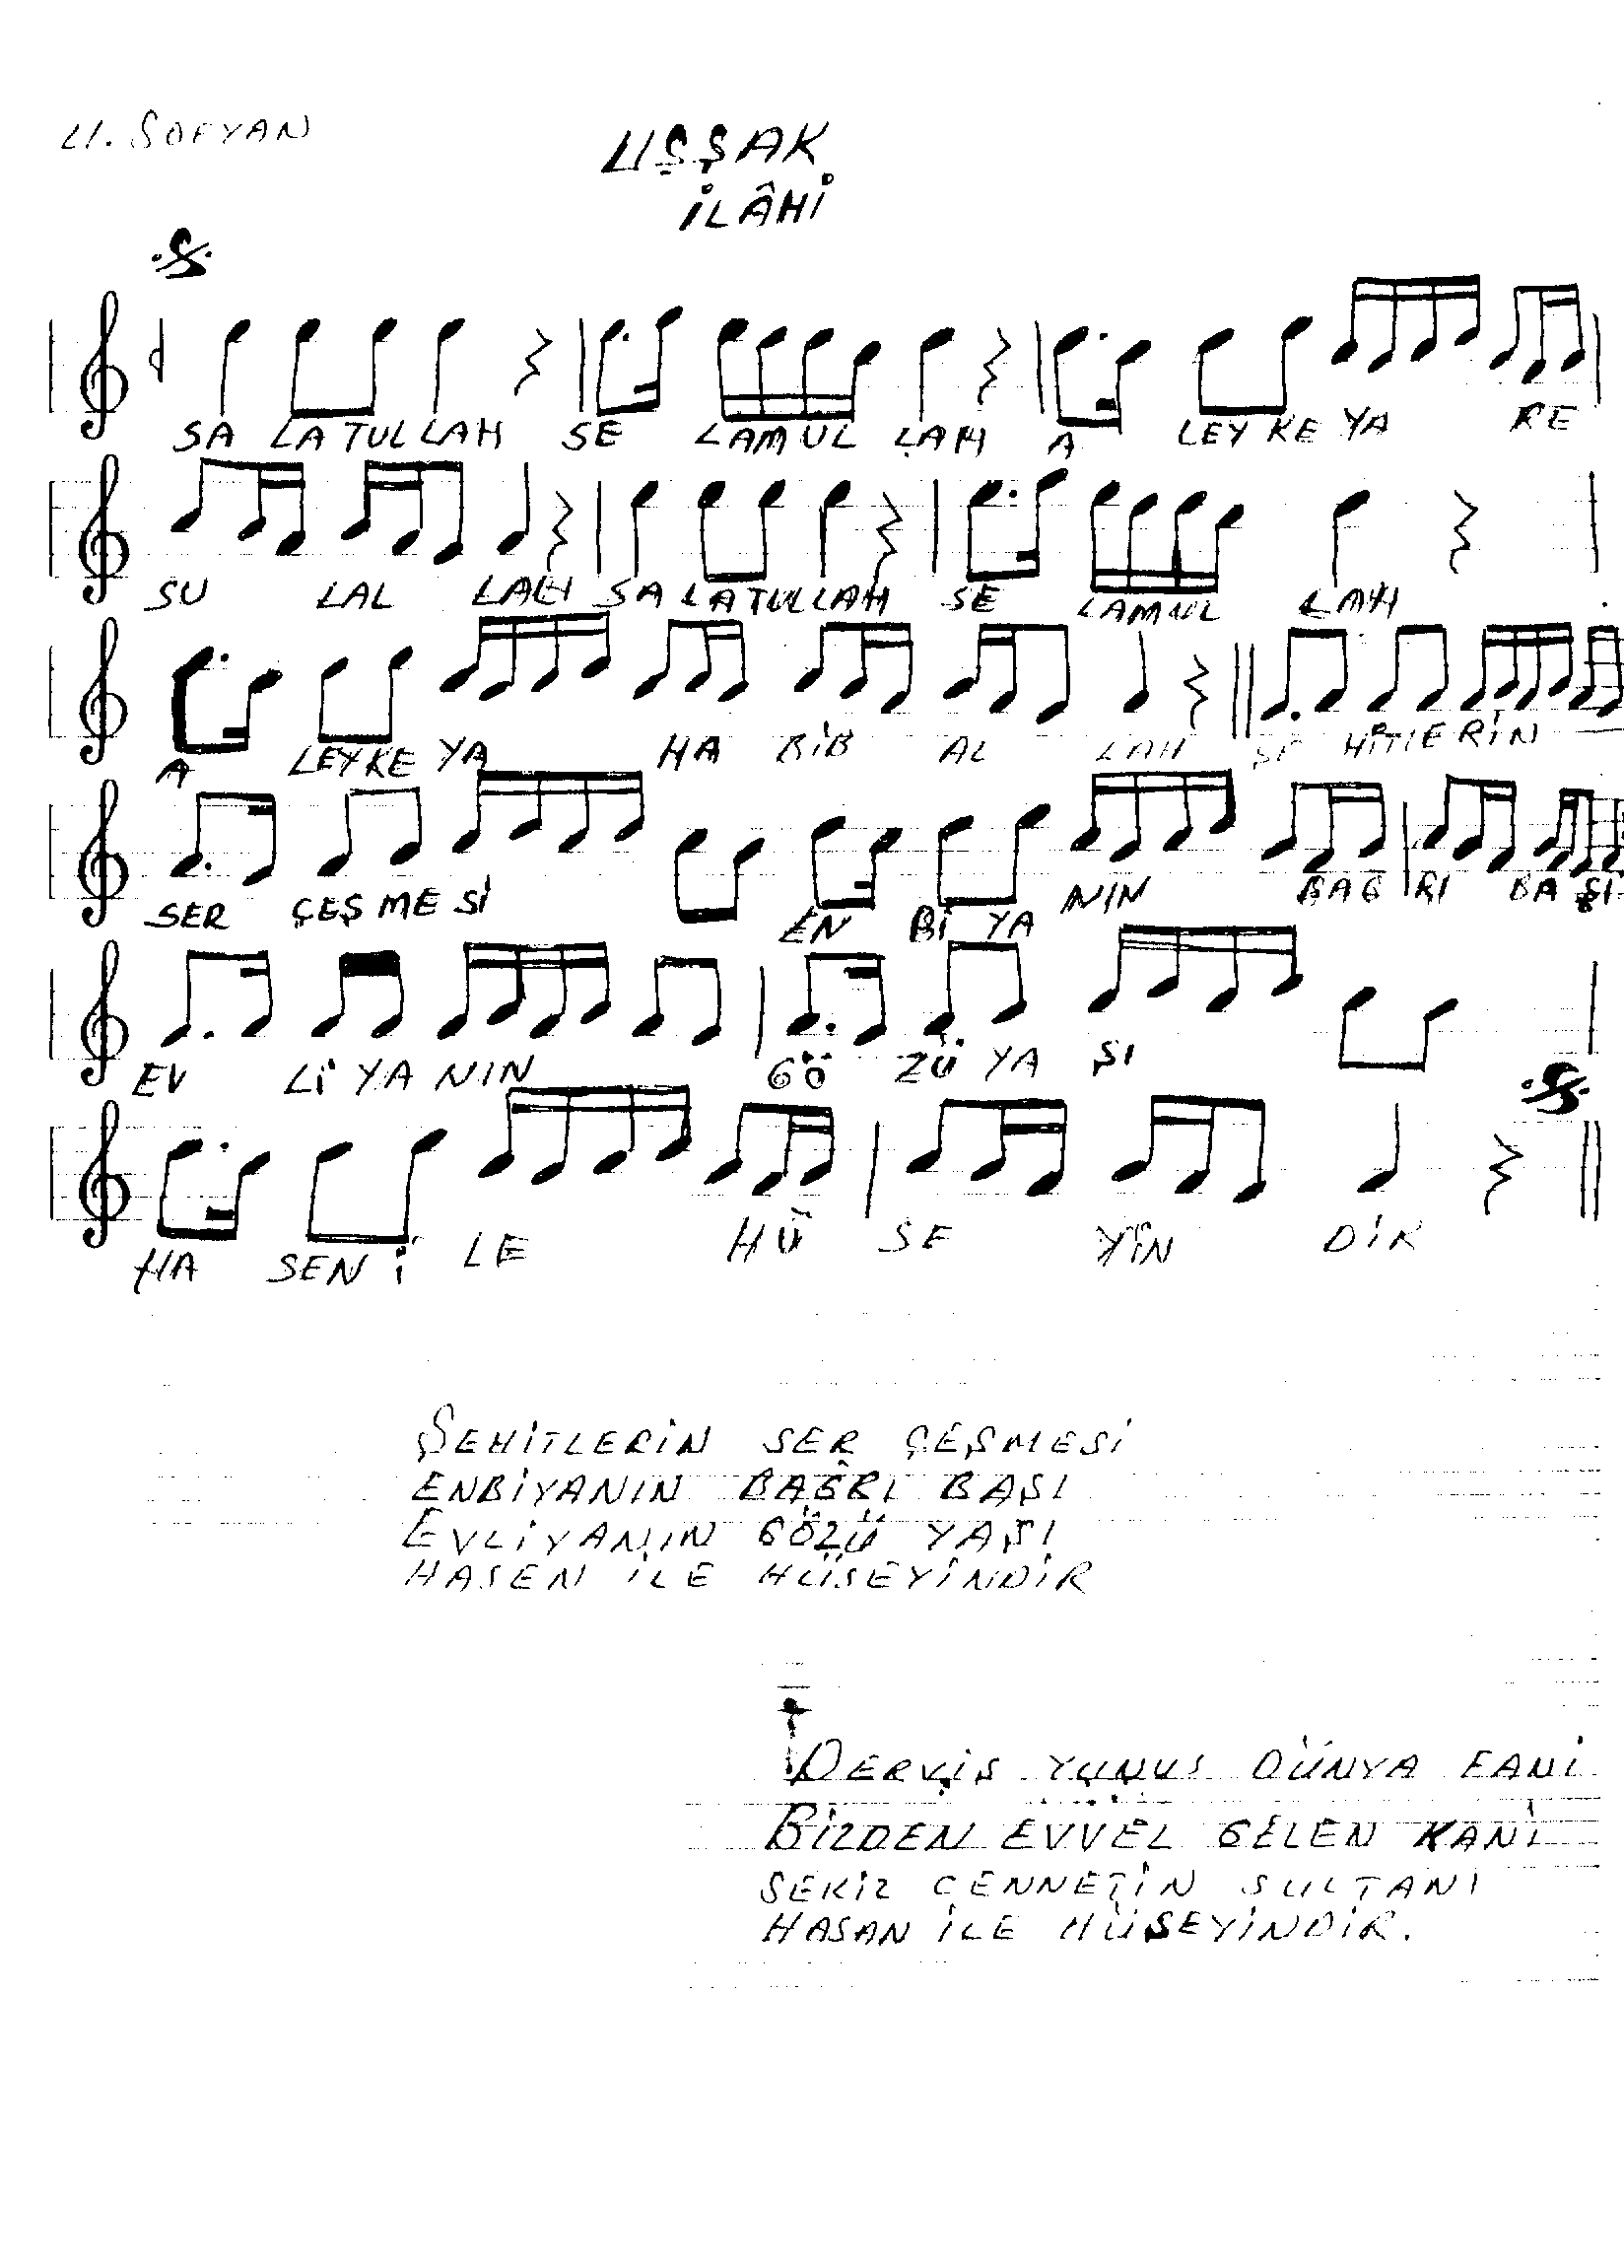 U. SOFYAN
UŞŞAK
İLÂHİ
SA LA TUL LAH SE LAMUL LAH A LEY KE YA RE
SU LAL LAH SA LATULLAH SE LAMUL LAH
A LEYKE YA HA BİB AL LAH ŞE HİTLERİN
SER ÇEŞ ME Sİ EN Bİ YA NIN BAĞ RI BA ŞI
EV Lİ YA NIN GÖ ZÜ YA ŞI
HA SEN İ LE HÜ SE YİN DİR
ŞEHİTLERİN SER ÇEŞMESİ
ENBİYANIN BAĞRI BAŞI
EVLİYANIN GÖZÜ YAŞI
HASEN İLE HÜSEYİNDİR
DERVİŞ YUNUS DÜNYA FANİ
BİZDEN EVVEL GELEN KANİ
SEKİZ CENNETİN SULTANI
HASAN İLE HÜSEYİNDİR.